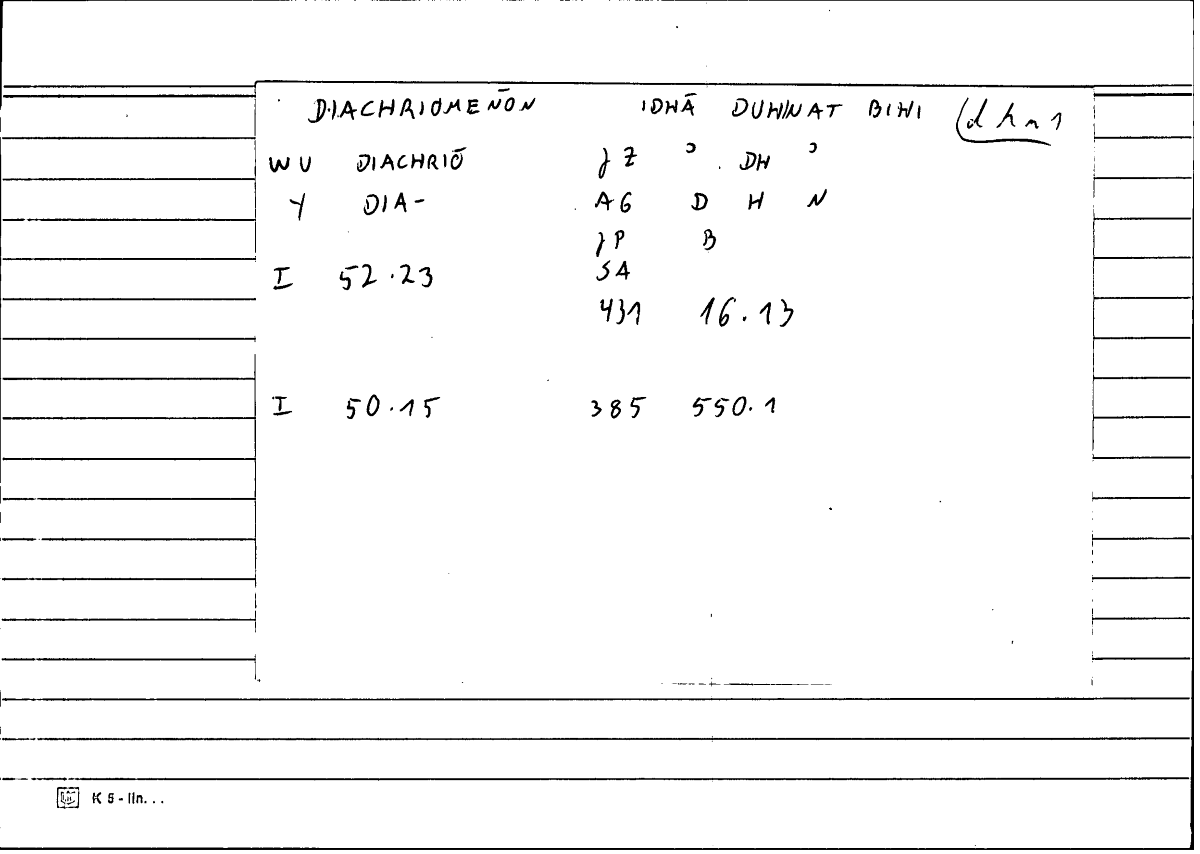 DIACHRIOMENŌN IDHĀ DUHINAT BIHI (dhn1
WU DIACHRIŌ ʒZ ɔ DH ɔ
Y DIA- AG D H N
ʒP B
I 52.23 SA
431 16.13
I 50.15 385 550.1
K 5 - lin...